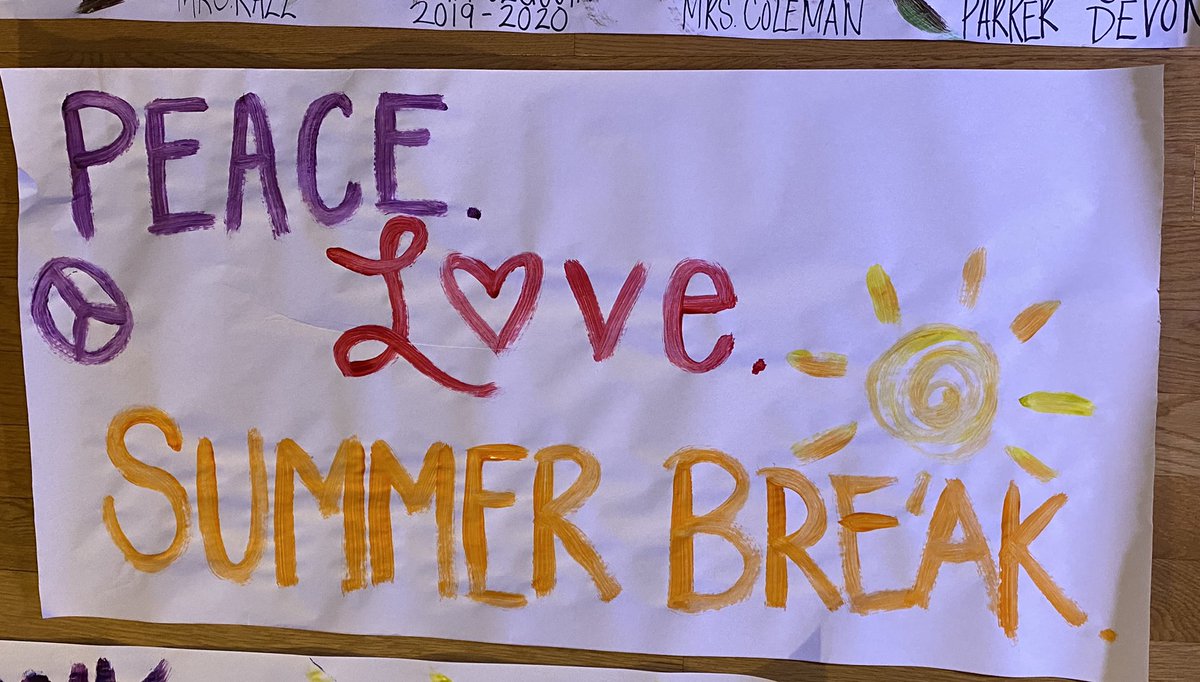 MRS. RALL
2019-2020
MRS. COLEMAN
PARKER
DEVON
PEACE.
Love.
SUMMER BREAK.